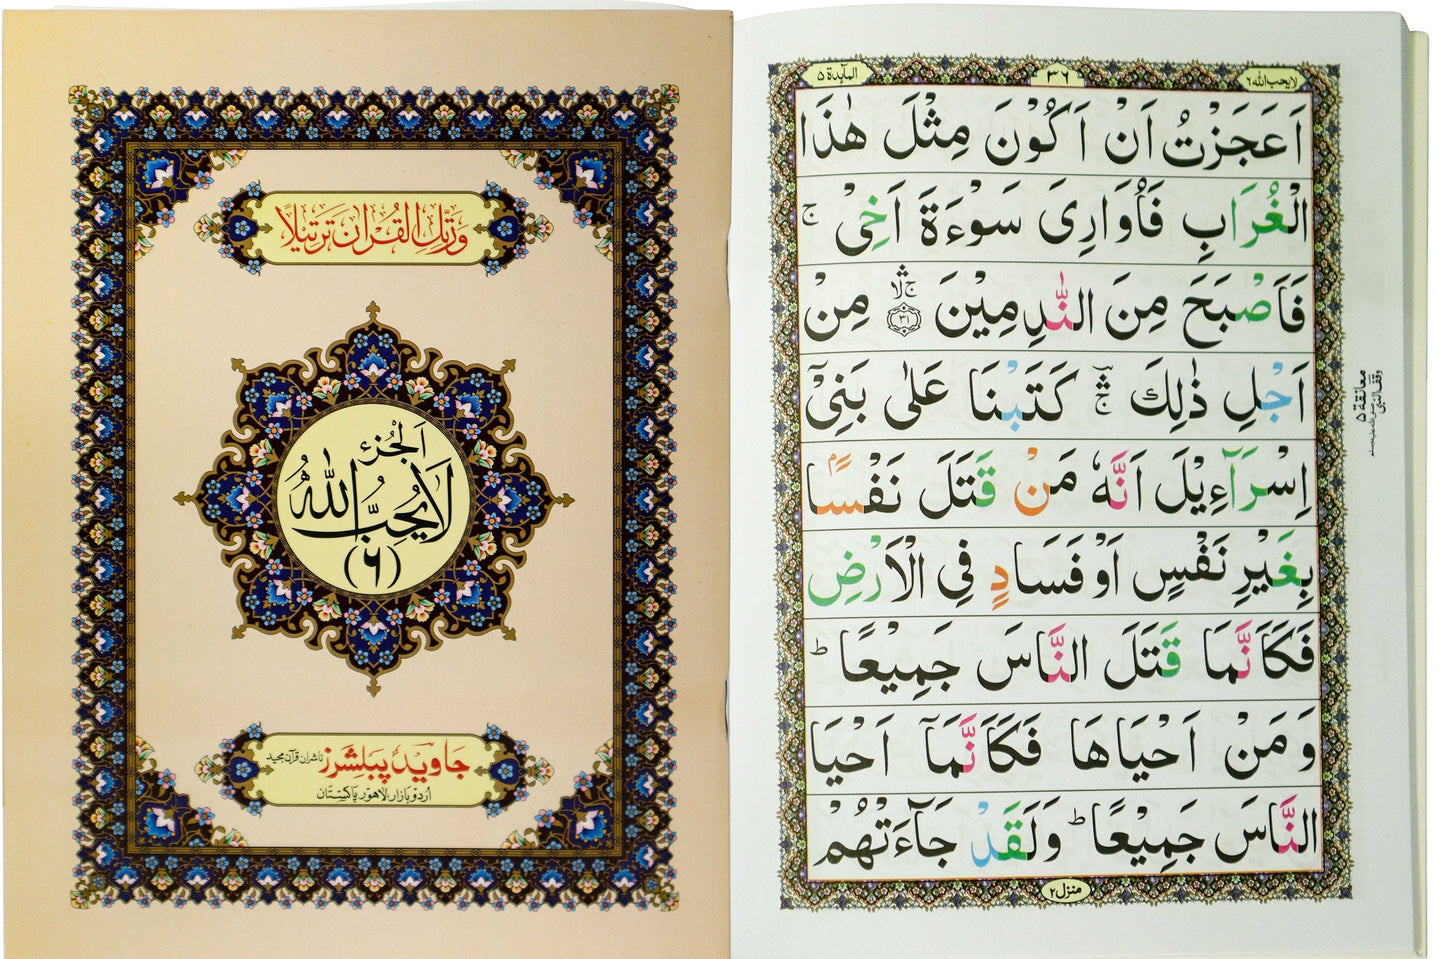 وَرَتِّلِ الْقُرْاٰنَ تَرْتِيْلًا
اَلْجُزْءُ
لَا يُحِبُّ اللّٰهُ
(٦)
جاوید پبلشرز ناشران قرآن مجید
اردو بازار، لاهور پاکستان
لايحب الله ٦
٣٦
المآىدة ٥
اَعَجَزْتُ اَنْ اَكُوْنَ مِثْلَ هٰذَا
الْغُرَابِ فَاُوَارِیَ سَوْءَةَ اَخِیْ ۚ
فَاَصْبَحَ مِنَ النّٰدِمِیْنَ ﴿٣١﴾ مِنْ
اَجْلِ ذٰلِكَ ۛ كَتَبْنَا عَلٰی بَنِیْۤ
اِسْرَآءِیْلَ اَنَّهٗ مَنْ قَتَلَ نَفْسًا
بِغَیْرِ نَفْسٍ اَوْ فَسَادٍ فِی الْاَرْضِ
فَكَاَنَّمَا قَتَلَ النَّاسَ جَمِیْعًا ؕ
وَ مَنْ اَحْیَاهَا فَكَاَنَّمَاۤ اَحْیَا
النَّاسَ جَمِیْعًا ؕ وَلَقَدْ جَآءَتْهُمْ
منزل ٢
معانقة ٥
وقف النبی